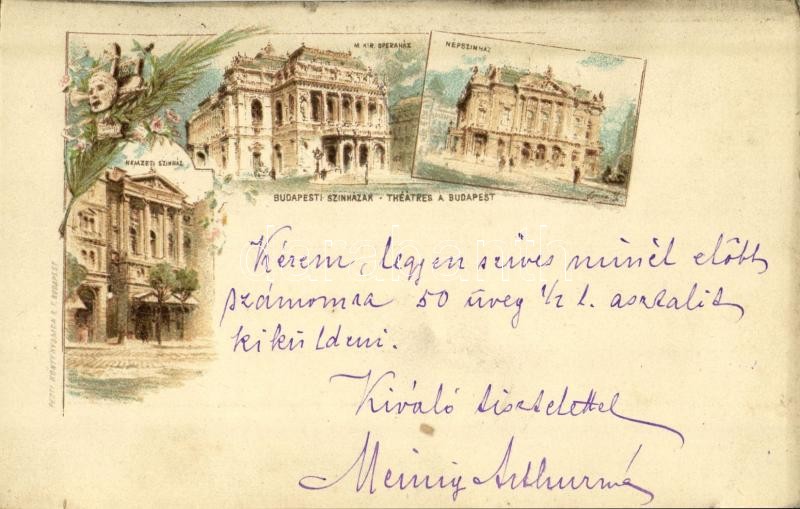 M. KIR. OPERAHÁZ
NÉPSZINHÁZ
NEMZETI SZINHÁZ
BUDAPESTI SZINHÁZAK · THÉÂTRES A BUDAPEST
Kérem, legyen szíves minél előbb
számomra 50 üveg 1/2 l. asztalit
kiküldeni.
Kiváló tisztelettel
Meinig Arthurné
PESTI KÖNYVNYOMDA R. T. BUDAPEST